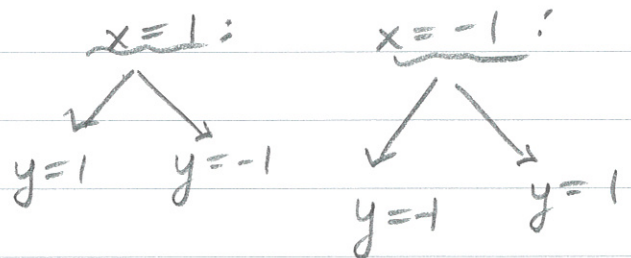 x = 1 : x = -1 :
y = 1 y = -1 y = -1 y = 1